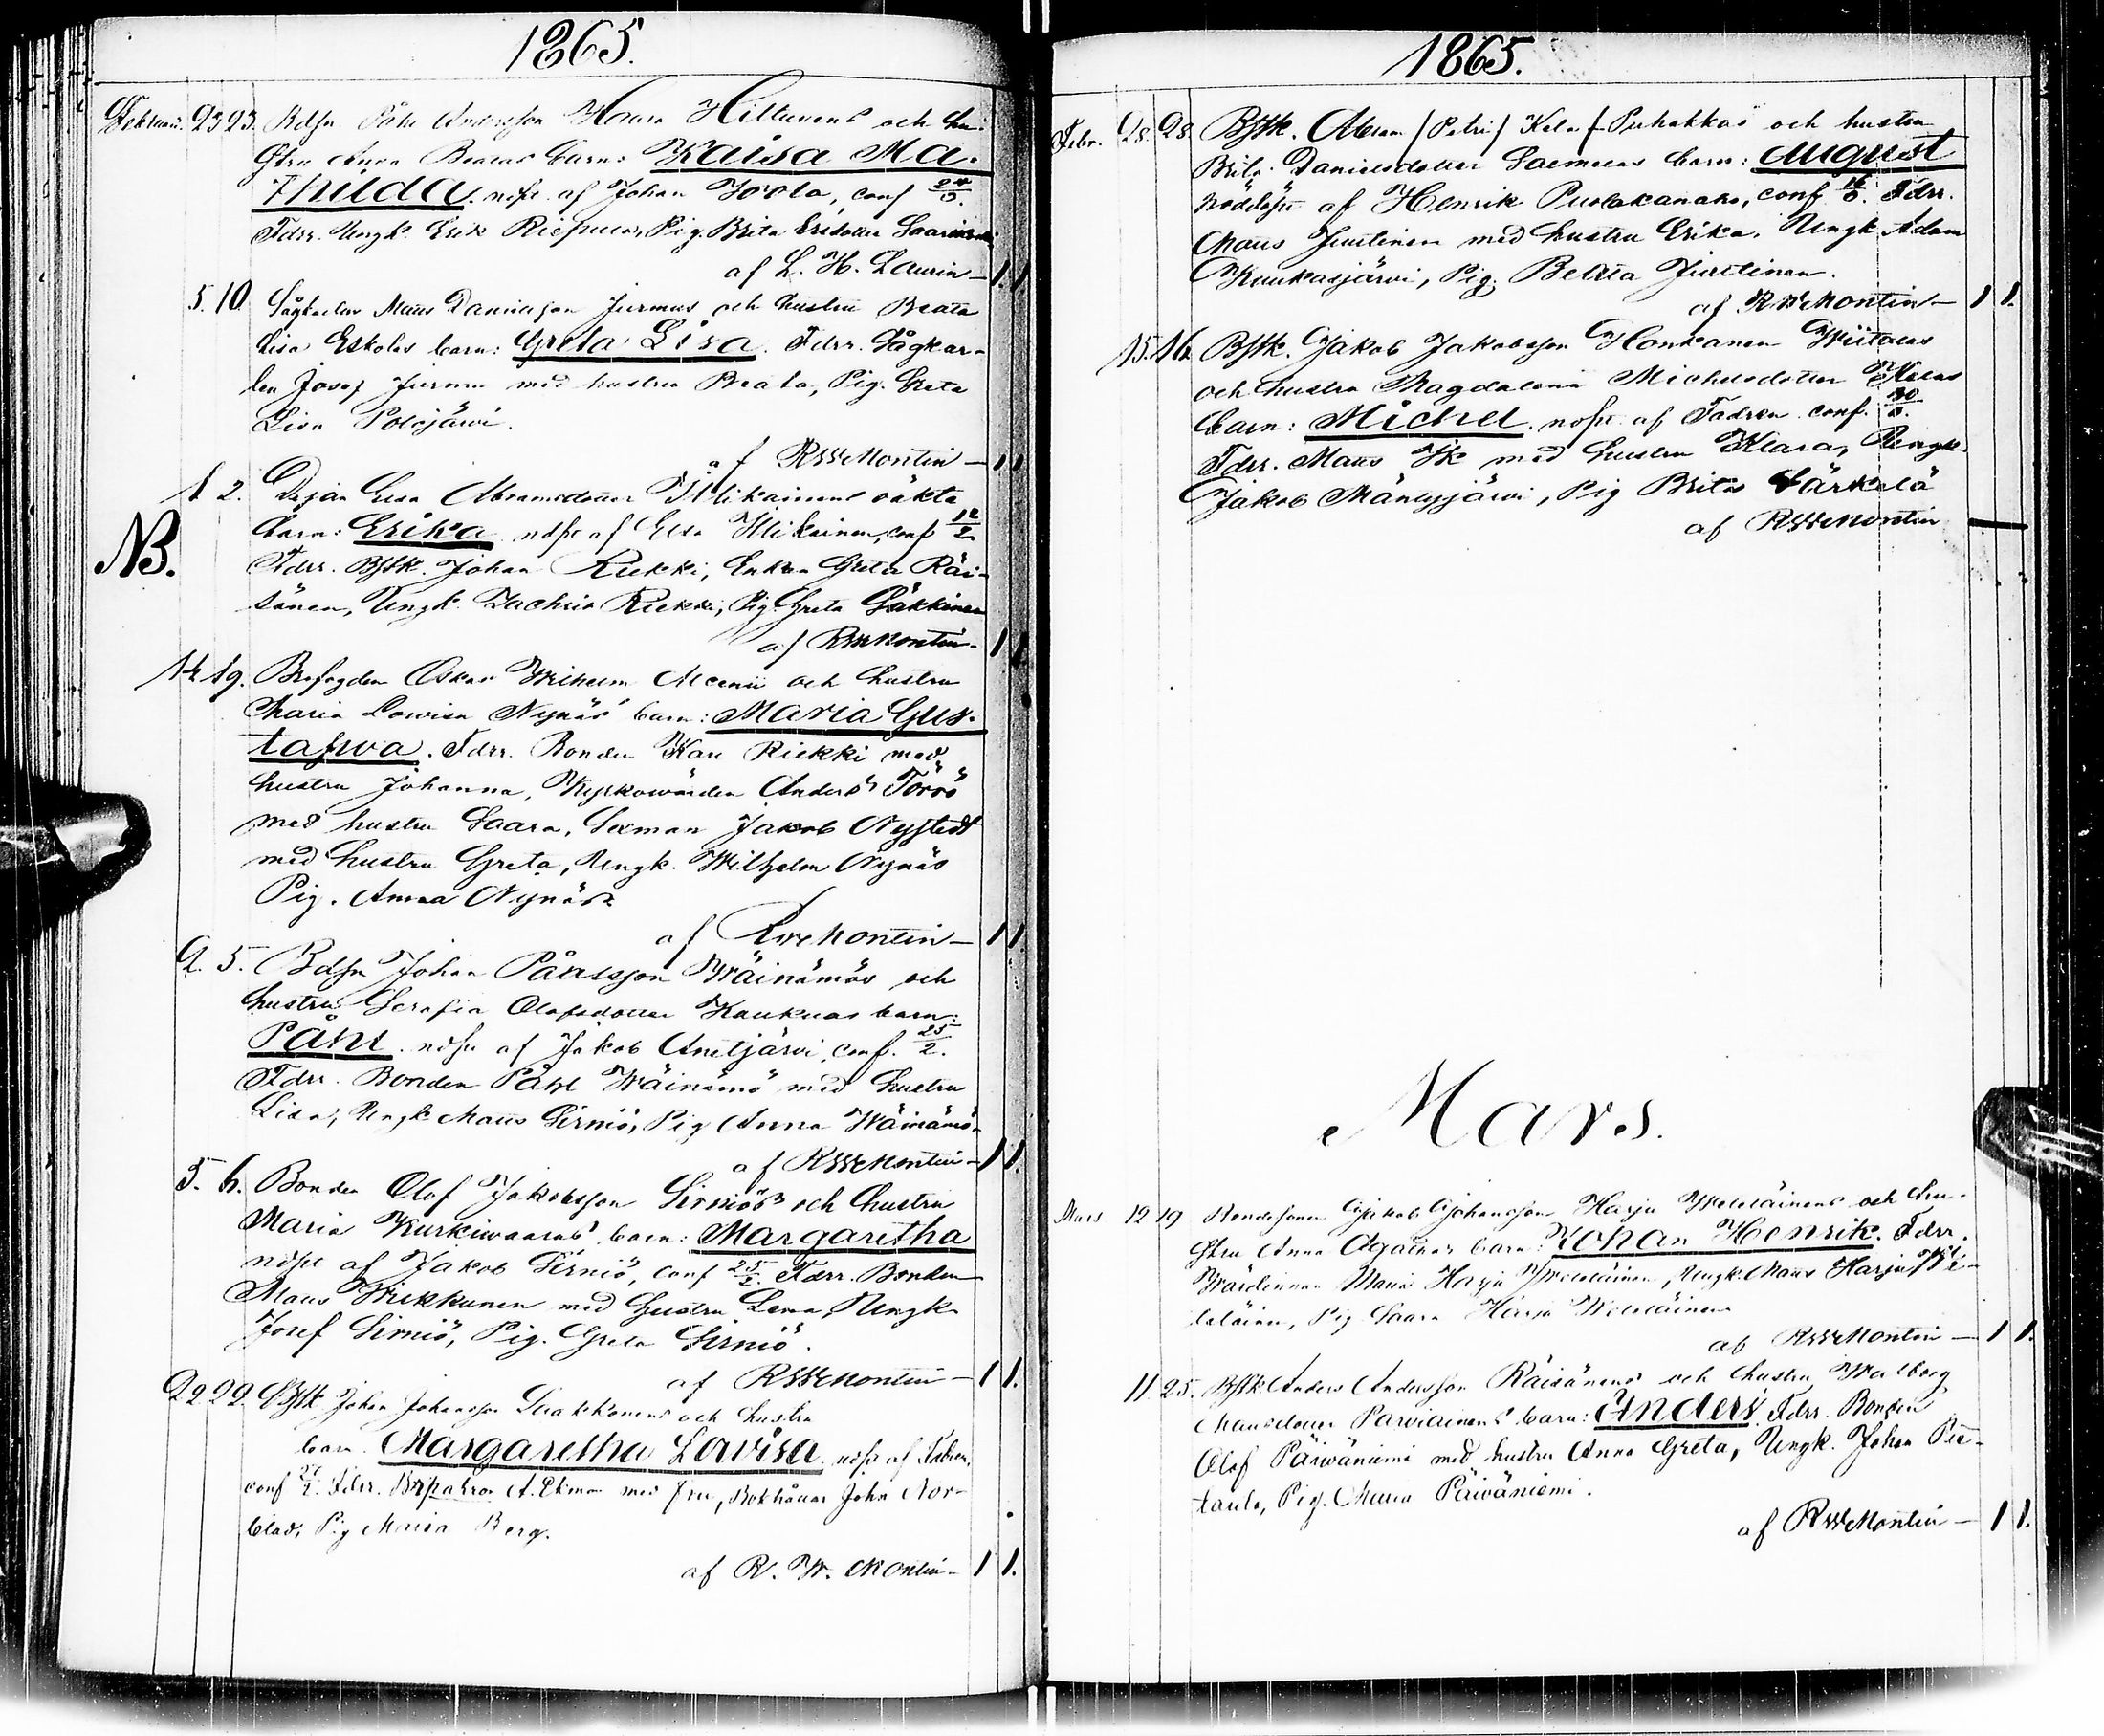 1865.
Februari. 23 23. Bdsn Påhl Andersson Haara Hiltunens och hu-
stru Anna Beatas barn: Kaisa Ma-
thilda. nöpt af Johan Joola, conf 24/3.
Fdrr. Ungk. Erik Riepula, Pig. Brita Ersdotter
af L. H. Laurin — 1 1.
5. 10. Sågkarlen Matts Danielsson Jurmus och hustru Beata
Lisa Eskolas barn: Greta Lisa. Fdrr. Sågkar-
len Josef Jurmu med hustru Beata, Pig. Greta
Lisa Polojärvi.
af RWMontin — 1 1
1 2. Dejan Elsa Abramsdotter Ylilikainens oäkta
NB.
barn: Erika nöpt af Elsa Ylikainen, conf 12/2.
Fdrr. Bstk. Johan Riekki, Enkan Greta Räi-
sänen, Ungk. Zachris Riekki, Pig. Greta Säkkinen
af RWMontin. 1 1.
14 19. Brofogden Oskar Wilhelm och hustru
Maria Lovisa Nynäs barn: Maria Gus-
tafwa. Fdrr. Bonden Karl Riekki med
hustru Johanna, Kyrkowärden Anders Törrö
med hustru Saara, Sexman Jakob Nystedt
med hustru Greta, Ungk. Wilhelm Nynäs
Pig. Anna Nynäs.
af RWMontin — 1 1.
2. 5. Bdsn Johan Påhlsson Wäinämös och
hustru Serafia Olofsdotter Kaukuas barn:
Påhl. nöpt af Jakob Anetjärvi, conf. 25/2.
Fdrr. Bonden Påhl Wäinämö med hustru
Lisa, Ungk Matts Sirniö, Pig Anna Wäinämö.
af RWMontin — 1 1.
5. 6. Bonden Olof Jakobsson Sirniös och hustru
Maria Kurkiwaaras barn: Margaretha
nöpt af Jakob Sirniö, conf 25/2. Fdrr. Bonden
Matts Wirkkunen med hustru Lena, Ungk.
Josef Sirniö, Pig. Greta Sirniö.
af RWMontin — 1 1.
22 22. Bstk Johan Johansson och hustru
barn. Margaretha Lovisa nöpt af Fadren,
conf Fdrr. Brpatron A. Ekman med fru, Bokhållar John Nor-
blad, Pig Maria Berg.
af R. W. Montin — 1 1.
1865.
Febr. 28. 28 Bstk. Abram (Petri) Kela f. Puhakkas och hustru
Brita Danielsdotter Saemelas barn: August
nödöpt af Henrik Puolakanaho, conf Fdrr.
Matts Juutinen med hustru Erika, Ungk Adam
Kuukasjärvi, Pig. Beata Juutinen.
af RWMontin — 1 1.
15. 16. Bstk. Jakob Jakobsson Honkanen Wiitalas
och hustru Magdalena Michelsdotter Kelas
barn: Michel. nöpt af Fadren conf.
Fdrr. Matts Yk med hustru Klara, Ungk.
Jakob Mäntyjärvi, Pig Brita Särkelä
af RWMontin
Mars.
Mars 12 19 Bondesonen Jakob Johansson Harju Weteläinens och hu-
stru Anna Agathas barn: Johan Henrik. Fdrr.
Wärdinnan Maria Harju Weteläinen, Ungk. Matts Harju We-
teläinen, Pig Saara Harju Weteläinen
af RWMontin — 1 1.
11. 25. Bstk Anders Andersson Räisänens och hustru Walborg
Mansdotter Parviainens barn: Anders. Fdrr. Bonden
Olof Päiwäniemi med hustru Anna Greta, Ungk. Johan Pie-
taula, Pig. Maria Päiwäniemi.
af RWMontin — 1 1.